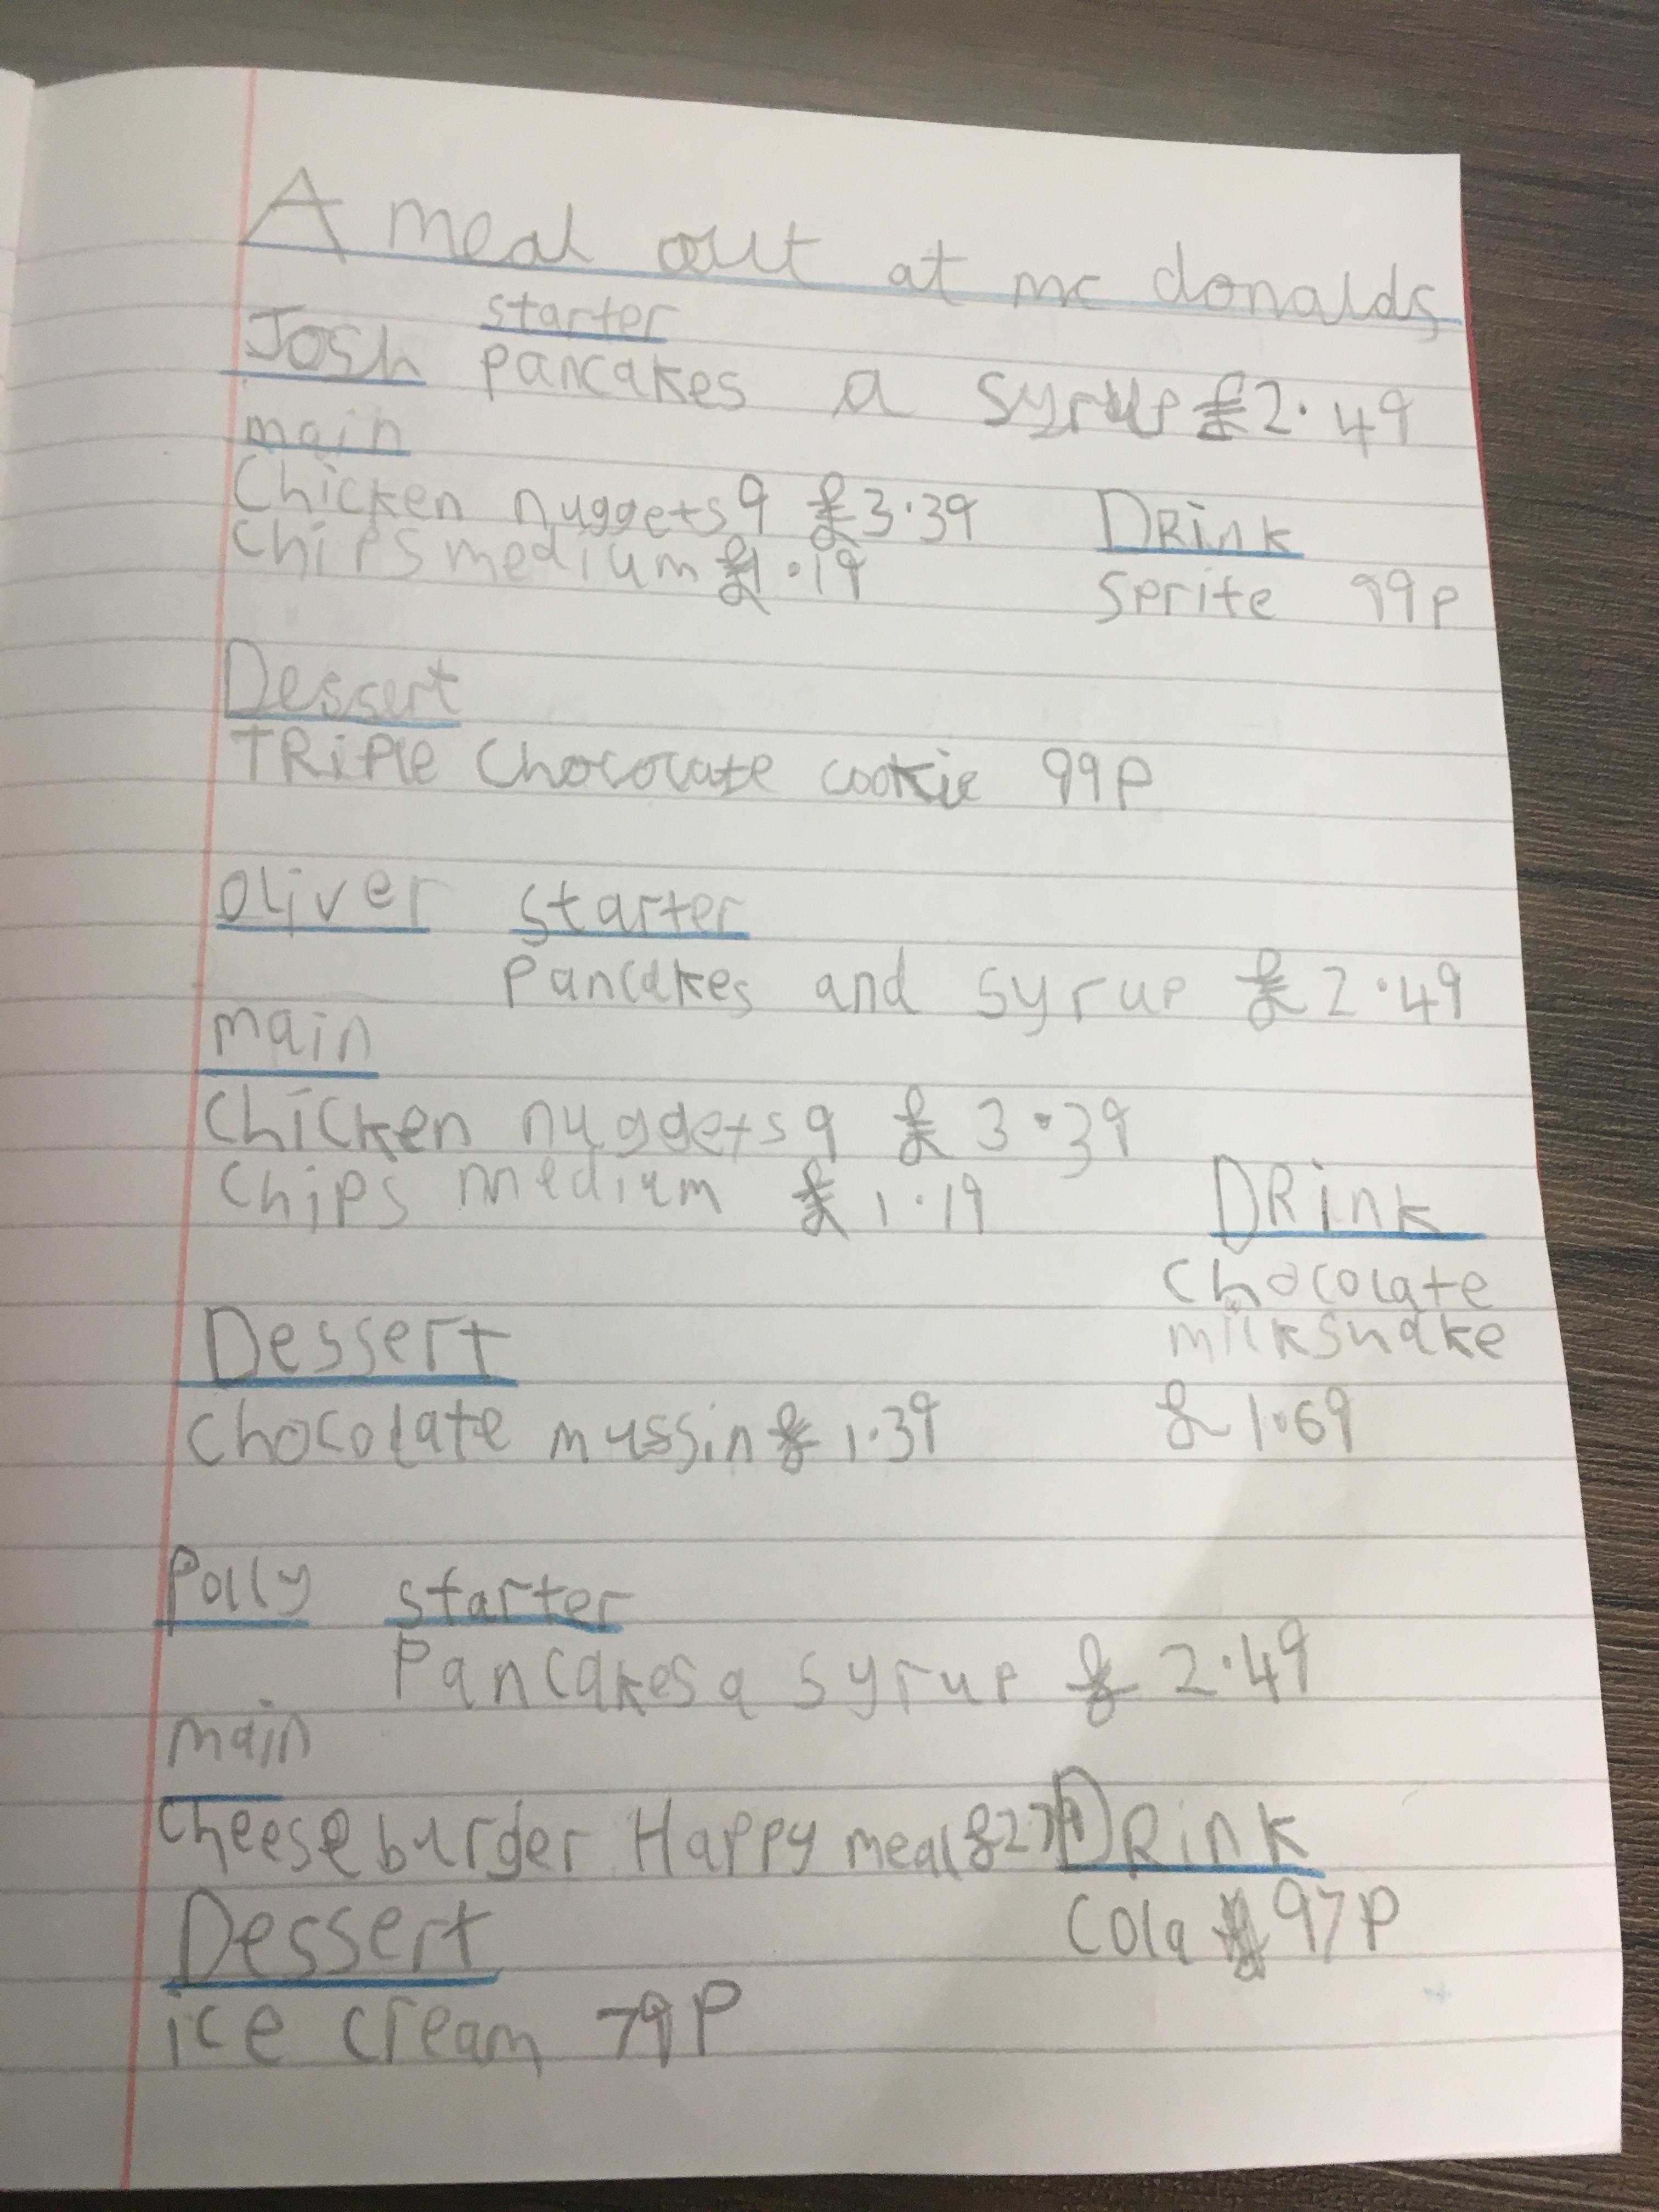 A meal out at mc donalds
starter
Josh pancakes a syrup £2.49
main
Chicken nuggets 9 £3.39
Chips medium £1.19
DRink
Sprite 99p
Dessert
TRiPle Chocolate cookie 99P
Oliver starter
Pancakes and syrup £2.49
main
Chicken nuggets 9 £3.39
Chips medium £1.19
DRink
Chocolate
milkshake
£1.69
Dessert
Chocolate mussin £1.39
Polly starter
Pancakes a syrup £2.49
main
Cheese burger Happy meal
DRink
Cola 97P
Dessert
ice cream 79P